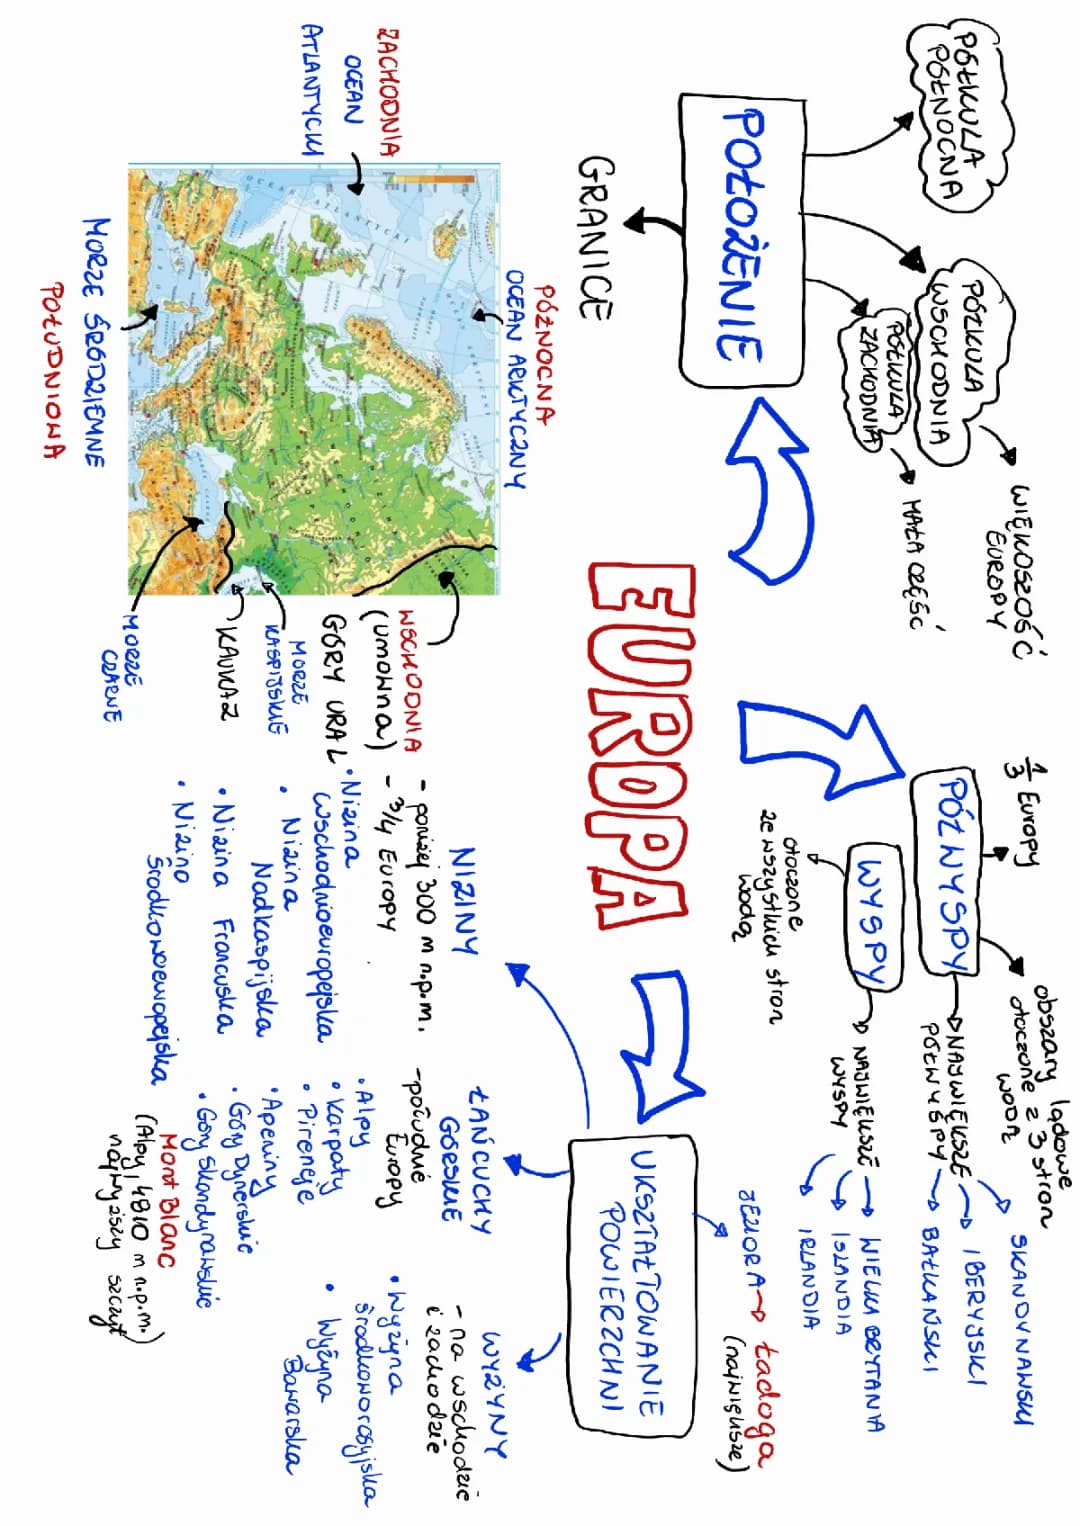 EUROPA
POŁOŻENIE
PÓŁKULA
PÓŁNOCNA
PÓŁKULA
WSCHODNIA
WIĘKSZOŚĆ
EUROPY
PÓŁKULA
ZACHODNIA
MAŁA CZĘŚĆ
GRANICE
PÓŁNOCNA
OCEAN ARKTYCZNY
ZACHODNIA
OCEAN
ATLANTYCKI
MORZE ŚRÓDZIEMNE
POŁUDNIOWA
WSCHODNIA
(umowna)
GÓRY URAL
MORZE
KASPIJSKIE
KAUKAZ
MORZE
CZARNE
1/3 Europy
PÓŁWYSPY
obszary lądowe
otoczone z 3 stron
wodą
NAJWIĘKSZE
PÓŁWYSPY
SKANDYNAWSKI
IBERYJSKI
BAŁKAŃSKI
WYSPY
otoczone
ze wszystkich stron
wodą
NAJWIĘKSZE
WYSPY
WIELKA BRYTANIA
ISLANDIA
IRLANDIA
UKSZTAŁTOWANIE
POWIERZCHNI
JEZIORA Ładoga
(największe)
NIZINY
- poniżej 300 m n.p.m.
- 3/4 Europy
• Nizina
Wschodnioeuropejska
• Nizina
Nadkaspijska
• Nizina Francuska
• Nizina
Środkowoeuropejska
ŁAŃCUCHY
GÓRSKIE
- południe
Europy
• Alpy
• Karpaty
• Pireneje
• Apeniny
• Góry Dynarskie
• Góry Skandynawskie
Mont Blanc
(Alpy, 4810 m n.p.m.)
najwyższy szczyt
WYŻYNY
- na wschodzie
i zachodzie
• Wyżyna
Środkoworosyjska
• Wyżyna
Bawarska